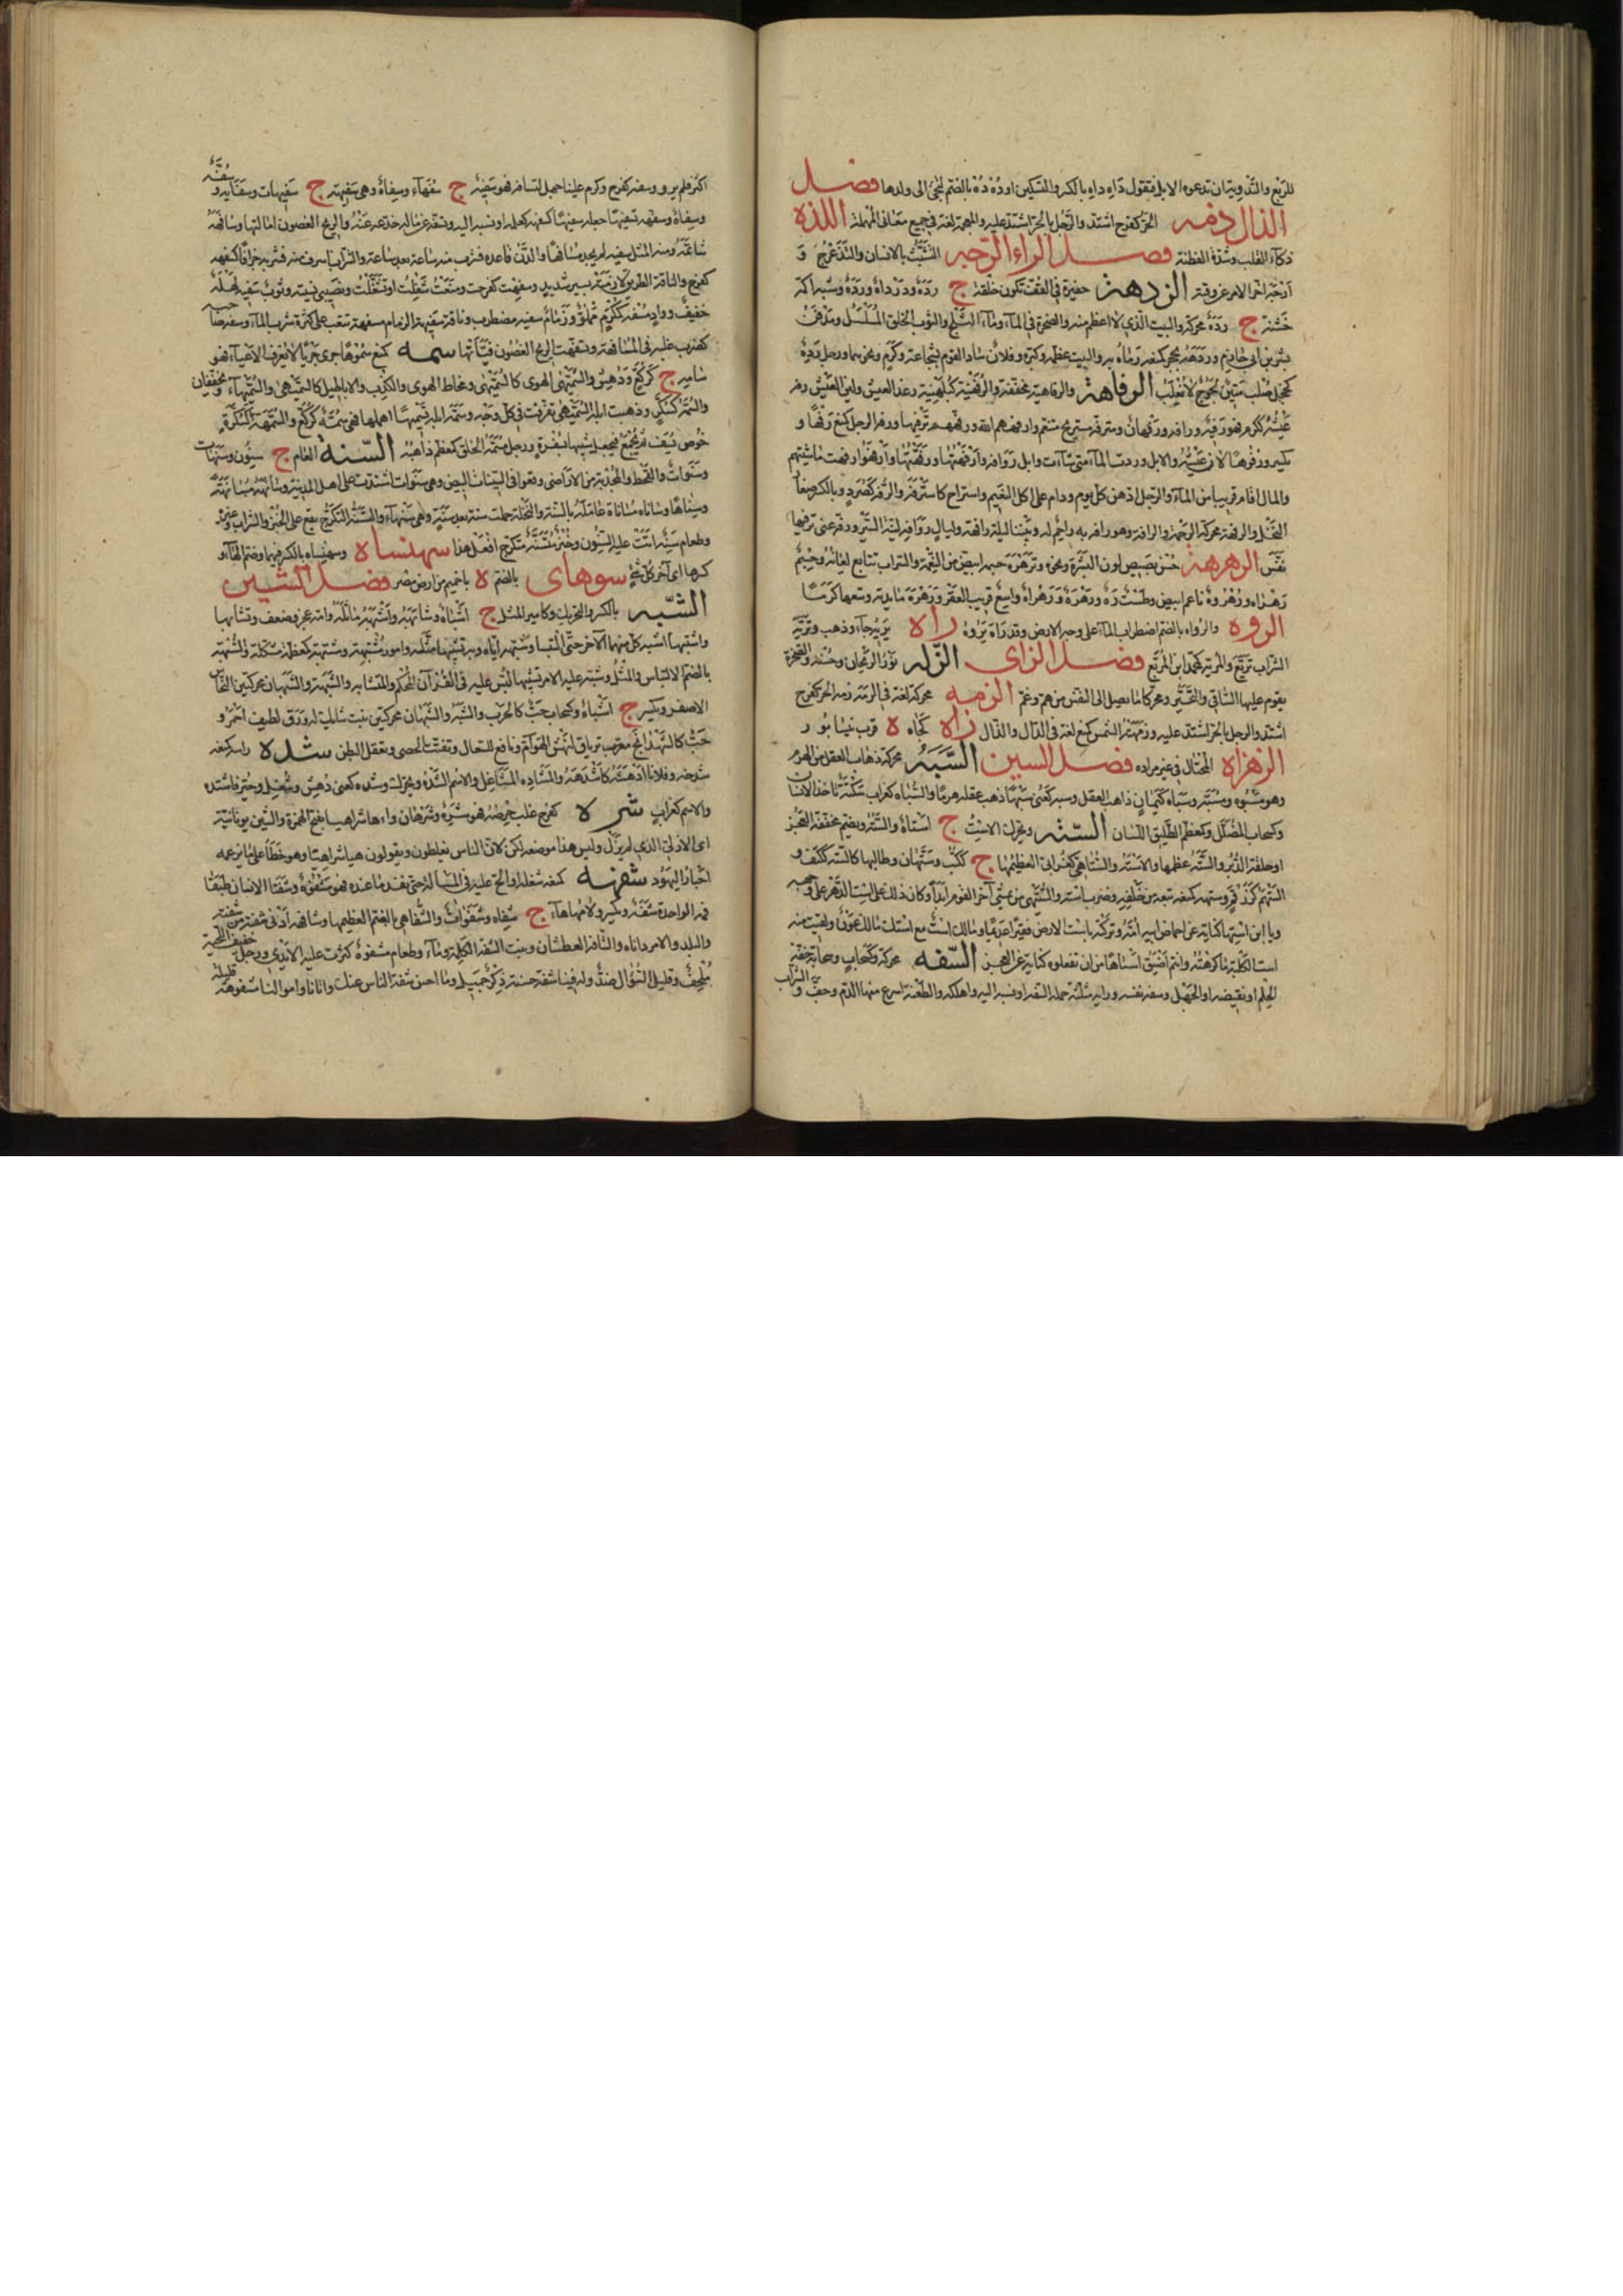 للربع والتدويه ان تدعو الابل فتقول داه داه بالكسر والتسكين او ده ده بالضم لتجئ الى ولدها فصل
الذال ذمه الحر كفرح اشتد والرجل بالحر اشتد عليه والمعجمة لغة في جميع معاني المهملة
ذكاء القلب وشدة الفطنة فصل الراء الرجه التثبت بالانسان والتزعزع و
ارجه اخر الامر عن وقته الردهة حفيرة في القف تكون خلقة ج رده ورداه ورده وشبه اكمة
خشنة ج رده محركة والبيت الذي لا اعظم منه والصخرة في الماء وماء الثلج والثوب الخلق المسلسل
بشر بن ابي خازم ورده بحجر كمنعه رماه به والبيت عظمه وكبره وفلان ساد القوم بشجاعة وكرم ونحوهما ورجل رده
كخجل صلب متين لجوج لا يغلب الرفاهة والرفاهية مخففة والرفهنية كبلهنية رغد العيش ولين العيش رفه
عيشه ككرم فهو رفيه ورافه ورفهان ومترفه مستريح متنعم وارفههم الله ورفههم ترفيها ورفه الرجل كمنع رفها و
يكسر ورفوها لان عيشه والابل وردت الماء متى شاءت وابل روافه وارفهتها ورفهتها وارفهوا رفهت ماشيتهم
والمال اقام قريبا من الماء والرجل ادهن كل يوم ودام على اكل النعيم واستراح كاسترفه والرفه كصرد وبالكسر صغار
النخل والرفهة محركة الرحمة والرافة وهو رافه به راحم له وبيننا ليلة رافهة وليال روافه لينة السير ورفه عني ترفيها
نفس الرهرهة حسن بصيص لون البشرة ونحوه وترهره جسمه ابيض من النعمة والسراب تتابع لمعانه وجسم
رهراه ورهروه ناعم ابيض وطست رهره ورهراه واسع قريب القعر ورهره مائدته وسعها كرما
الروه والرواه بالضم اضطراب الماء على وجه الارض وقد راه يروه راه يريه جاء وذهب وتريه
السراب تريع والمريه كمحمد ابن المريع فصل الزاي الزله نور الريحان وحسنه والصخرة
يقوم عليها الساقي والتحير ومحركا ما يصل الى النفس من هم وغم الزمه محركة لغة في الرمه زمه الحر كفرح
اشتد والرجل بالحر اشتد عليه وزمهته الشمس كمنع لغة في الدال والذال زاه كجاه ة قرب نيسابور
الزهزاه المختال في غير مراده فصل السين السبه محركة ذهاب العقل من الهرم
وهو مسبوه ومسبه وسباه كثمان ذاهب العقل وسبه كعني سبها ذهب عقله هرما والسباه كغراب سكتة تاخذ الانسان
وكسحاب المضلل وكمعظم الطليق اللسان السته ويحرك الاست ج استاه والسته ويضم مخففة العجز
او حلقة الدبر والسته عظمها والاسته والستاهي كغرابي العظيمها ج ككتب وستهان وطالبها كالسته ككتف و
الستهم كزرقم وستهه كمنعه تبعه من خلفه وضرب استه والستيهي من يمشي اخر القوم ابدا وكان ذلك على است الدهر على وجهه
ويا ابن استها كناية عن احماض ابيه امه وتركته باست الارض فقيرا عديما ومالك است مع استك مالك عون ولقيت منه
است الكلبة ما كرهته وانتم اضيق استاها من ان تفعلوه كناية عن العجز السفه محركة وكسحاب وسحابة خفة
الحلم او نقيضه او الجهل وسفه نفسه ورايه مثلثة حمله على السفه او نسبه اليه واهلكه والطعنة اسرع منها الدم وجف والشراب
اكثر فلم يرو وسفه كفرح وكرم علينا جهل كتسافه فهو سفيه ج سفهاء وسفاه وهي سفيهة ج سفيهات وسفائه وسفه
وسفاه وسفهه تسفيها جعله سفيها كسفهه كعلمه او نسبه اليه وتسفهه عن ماله خدعه عنه والريح الغصون امالتها وسافهه
شاتمه ومنه المثل سفيه لم يجد مسافها والدن قاعده فشرب منه ساعة بعد ساعة والشراب اسرف فيه فشربه جزافا كسفهه
كفرح والناقة الطريق لازمته بسير شديد وسفهت كفرحت ومنعت شغلت او تشغلت ونصيبي نسيته وثوب سفيه لهله
خفيف وواد مسفه ككرم مملوء وزمام سفيه مضطرب وناقة سفيهة الزمام وسفهه تتعب على كثرة شرب الماء وسفه صاحبه
كضرب غلبه في المسافهة وتسفهت الريح الغصون فيأتها سمه كمنع سموها جرى جريا لا يعرف الاعياء فهو
سامه ج كركع ودهش والسمهى الهوى كالسميهى ومخاط الهوى والكذب والاباطيل كالسميهى والسميهاء مخففتان
والسمه كسكر وذهبت ابله السميهى تفرقت في كل وجه وسمه ابله تسميها اهملها فهي سمه كركع والسمهة كسكرة
خوص يسف ثم يجمع فيجعل شبيها بسفرة ورجل مسمه الخلق كمعظم ذاهبه السنة العام ج سنون وسنهات
وسنوات والقحط والمجدبة من الاراضي ووقعوا في السنيات البيض وهي سنوات اشتدت على اهل المدينة وسانهه مسانهة
وسناها وساناه مساناة عامله بالسنة والنخلة حملت سنة بعد سنة وهي سنهاء والتسنه التكرج يقع على الخبز والشراب وغيره
وطعام سنه اتت عليه السنون وخبز متسنه متكرج افعل هذا سهنساه وسهنساه بالكسر فيهما وضم الهاء و
كسرها اي اخر كل شئ سوهاي بالضم ة باخميم من ارض مصر فصل الشين
الشبه بالكسر والتحريك وكامير المثل ج اشباه وشابهه واشبهه ماثله وامه عجز وضعف وتشابها
واشتبها اشبه كل منهما الاخر حتى التبسا وشبهه اياه وبه تشبيها مثله وامور مشتبهة ومشبهة كمعظمة مشكلة والشبهة
بالضم الالتباس والمثل وشبه عليه الامر تشبيها لبس عليه وفي القرآن المحكم والمتشابه والشبه والشبهان محركتين النحاس
الاصفر ويكسر ج اشباه وكسحاب حب كالحرف والشبه والشبهان محركتين نبت شائك له ورد لطيف احمر و
حب كالشهدانج معجب ترياق لنهش الهوام نافع للسعال ويفتت الحصى ويعقل البطن شده راسه كمنعه
شدخه وفلانا ادهشه كاشدهه والمشاده المشاغل والاسم الشده ويحرك وشده كعني دهش وشغل وحير فاشتده
والاسم كغراب شره كفرح غلب حرصه فهو شره وشرهان واهيا شراهيا بفتح الهمزة والشين يونانية
اي الازلي الذي لم يزل وليس هذا موضعه لكن لان الناس يغلطون ويقولون هيا شراهيا وهو خطأ على ما يزعمه
احبار اليهود شفهه كمنعه شغله او الح عليه في المسالة حتى نفد ما عنده فهو مشفوه وشفتا الانسان طبقا
فمه الواحدة شفة ويكسر ولامها هاء ج شفاه وشفوات والشفاهي بالضم العظيمها وشافهه ادنى شفته من شفته
والبلد والامر داناه والشافه العطشان وبنت الشفة الكلمة وماء وطعام مشفوه كثرت عليه الايدي ورجل خفيف الشفة
ملحف وقليل السؤال ضد وله فينا شفة حسنة ذكر جميل وما احسن شفة الناس عنك واتانا واموالنا مشفوهة قليلة